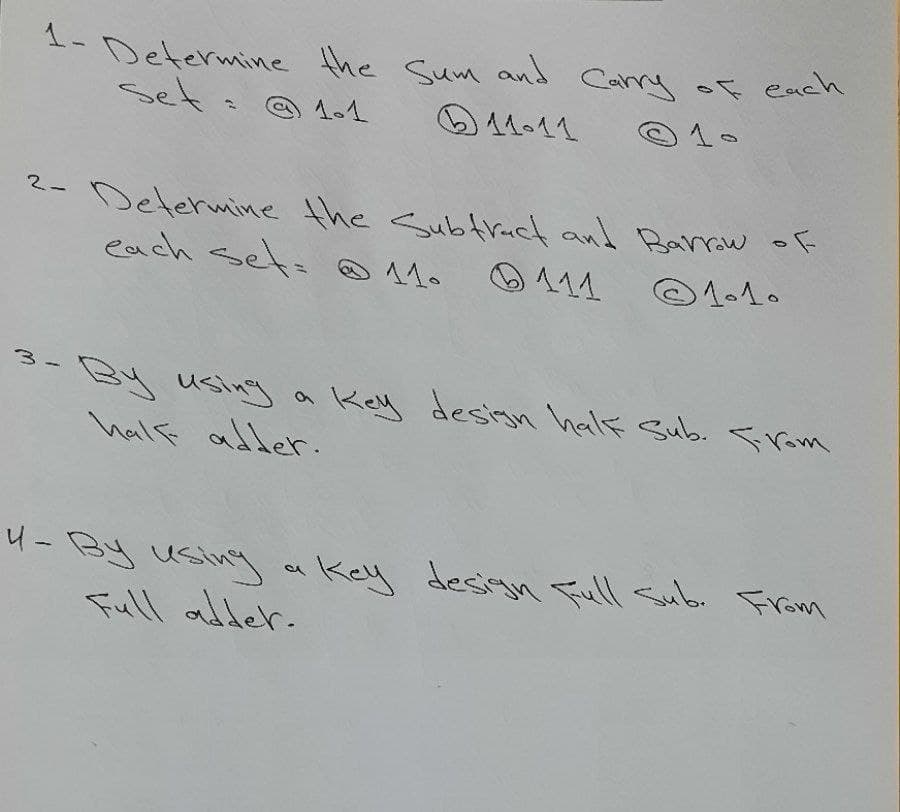 1- Determine the Sum and Carry of each
Set : ⓐ 101 ⓑ 11011 ⓒ 10
2- Determine the Subtract and Barrow of
each set= ⓐ 110 ⓑ 111 ⓒ 1010
3- By using a Key design half Sub. From
half adder.
4- By using a Key design Full Sub. From
Full adder.